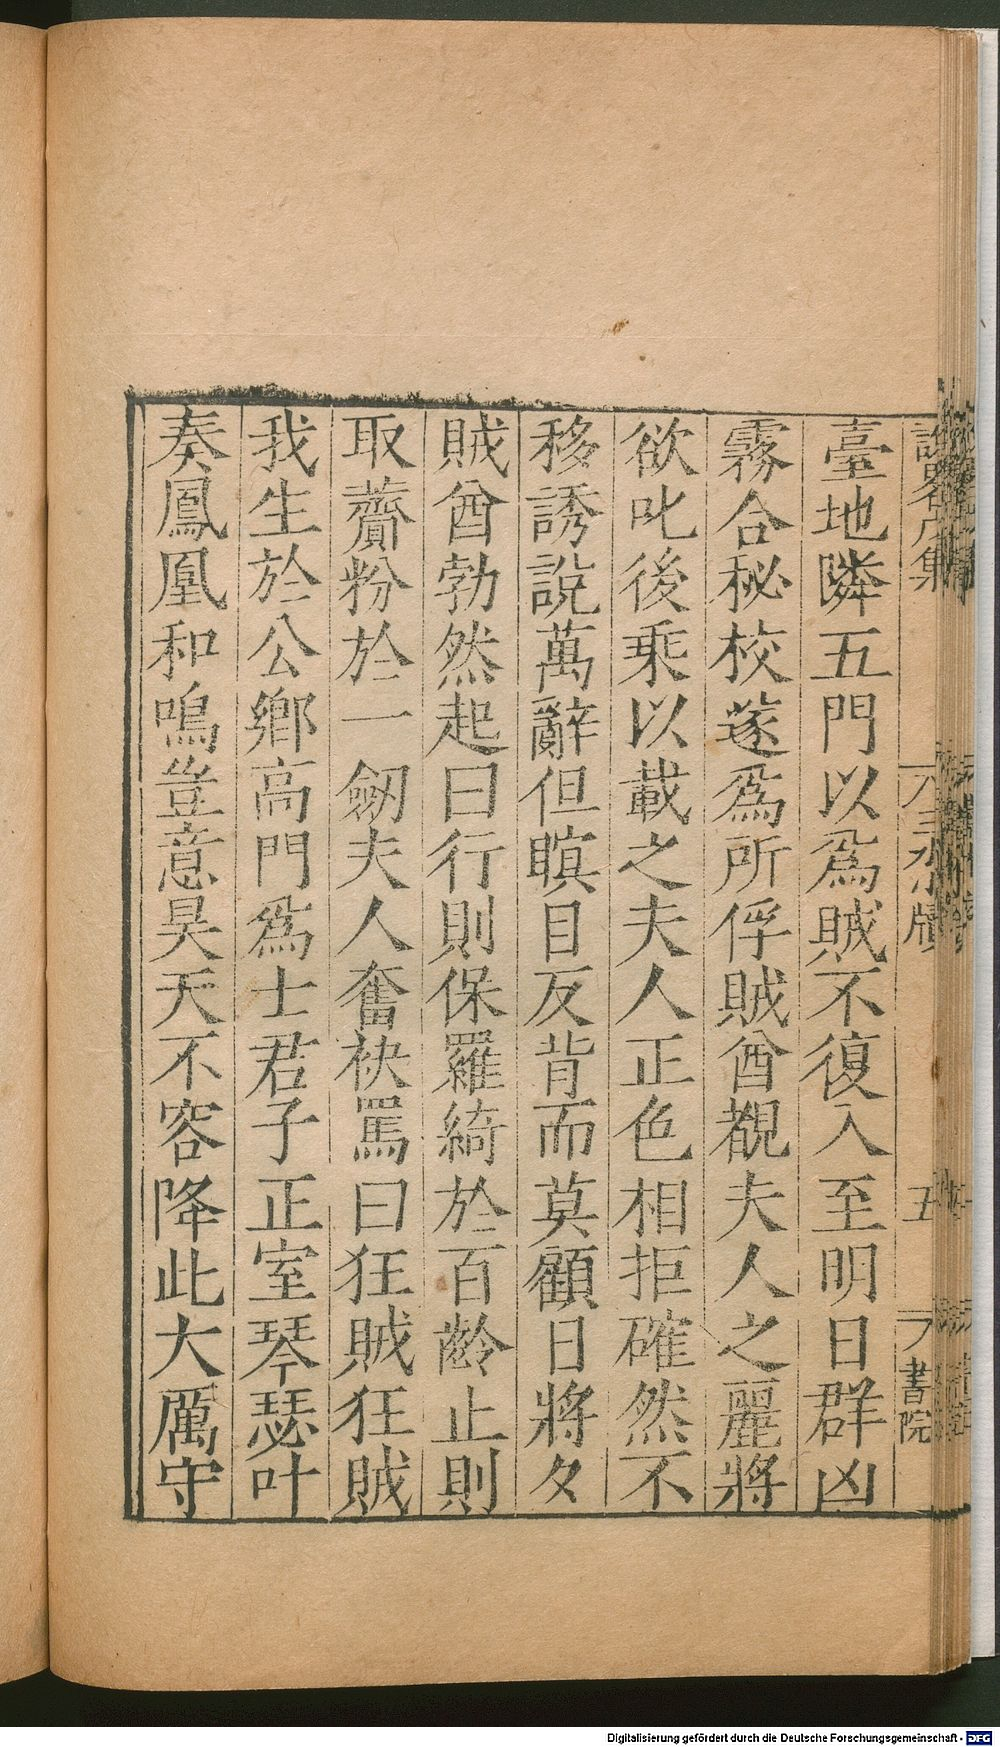 臺地隣五門以爲賊不復入至明日群凶
霧合秘校蓫爲所俘賊酋覩夫人之麗將
欲叱後乘以載之夫人正色相拒確然不
移誘說萬辭但瞑目反背而莫顧日將夕
賊酋勃然起曰行則保羅綺於百齡止則
取薺粉於一劒夫人奮袂罵曰狂賊狂賊
我生於公鄉高門爲士君子正室琴瑟叶
奏鳳凰和鳴豈意昊天不容降此大厲守
五
書院
Digitalisierung gefördert durch die Deutsche Forschungsgemeinschaft - DFG